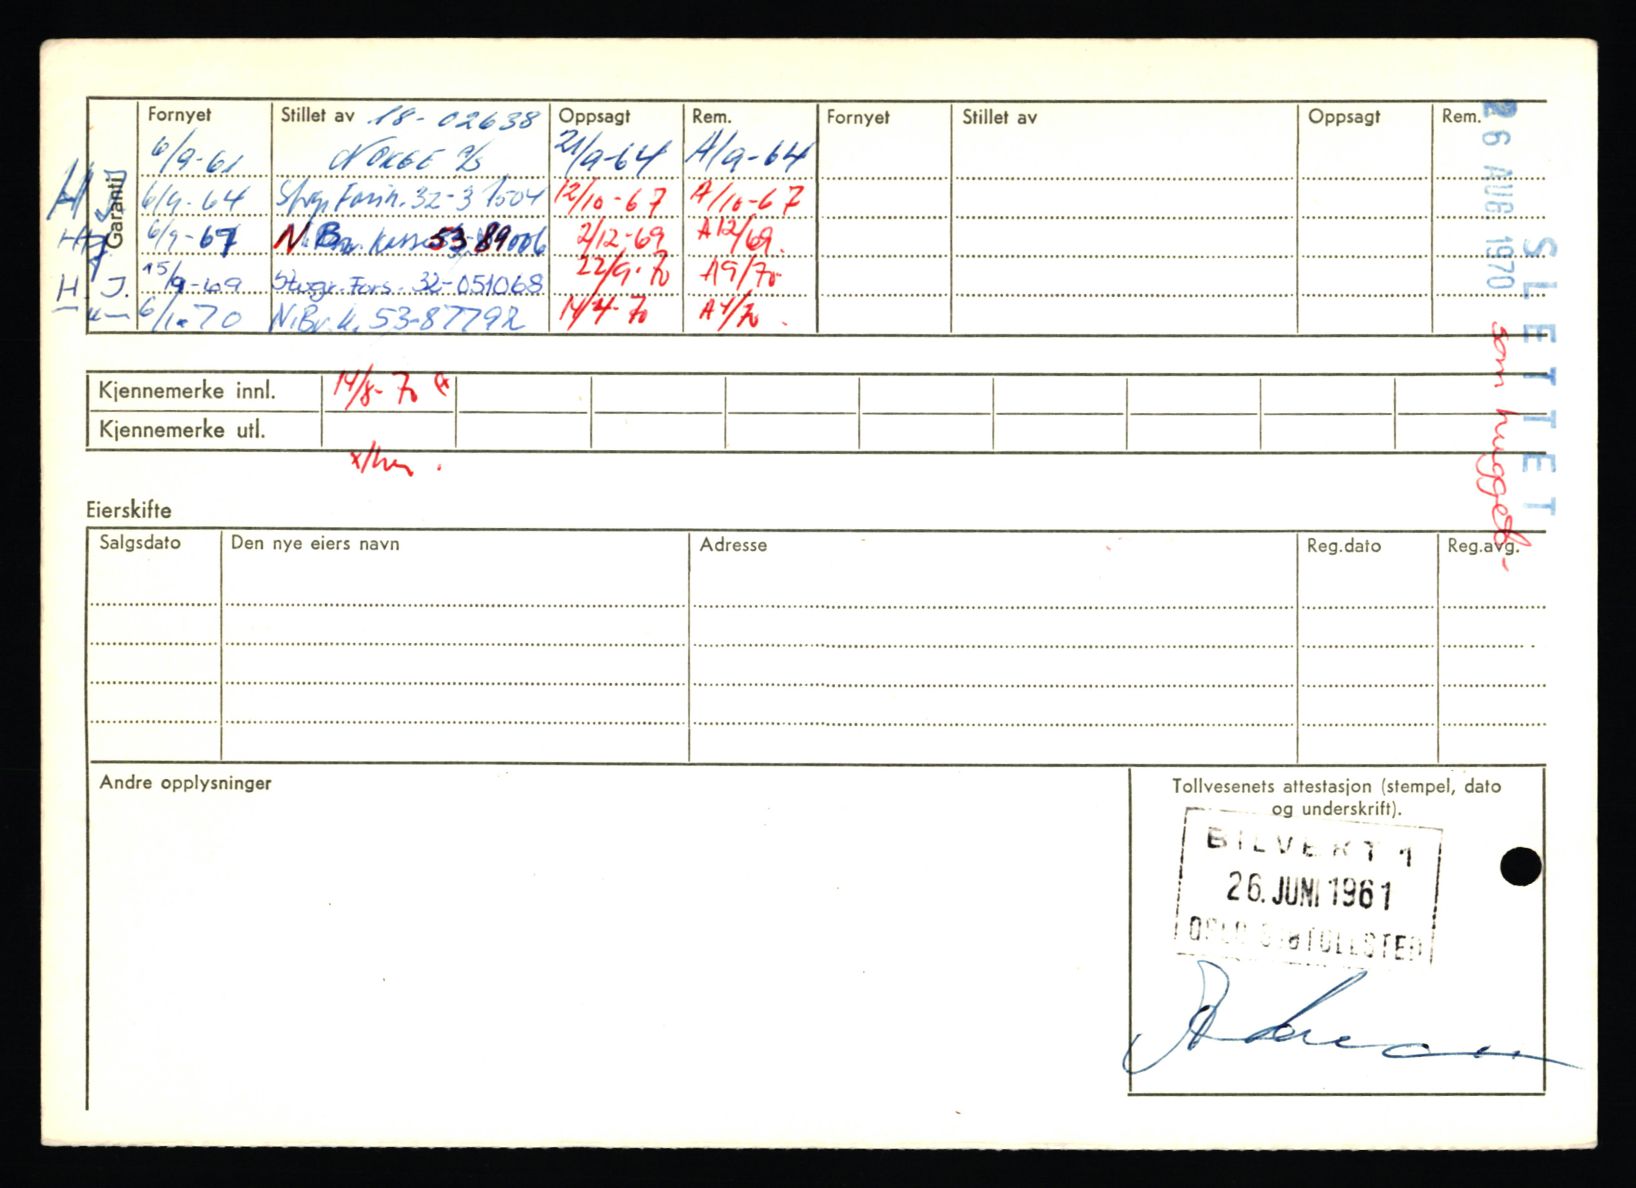 Fornyet Stillet av 18-02638 Oppsagt Rem. Fornyet Stillet av Oppsagt Rem.
6/9-61 NORGE A/S 21/9-64 A/9-64
Garanti
6/9-64 32-31504 12/10-67 A/10-67
6/9-67 N. Br. Kasse 53 89006 2/12-69 A12/69.
H.J. 15/9-69 Storgr. Fors. 32-051068 22/9-70 A9/70
6/1-70 N.Br.k. 53-87792 14/4-70 A4/70.
26 AUG 1970
SLETTET
som hugget-
Kjennemerke innl. 14/8-70
Kjennemerke utl.
Eierskifte
Salgsdato Den nye eiers navn Adresse Reg.dato Reg.avg.
Andre opplysninger
Tollvesenets attestasjon (stempel, dato
og underskrift).
BILVERT 1
26. JUNI 1961
OSLO